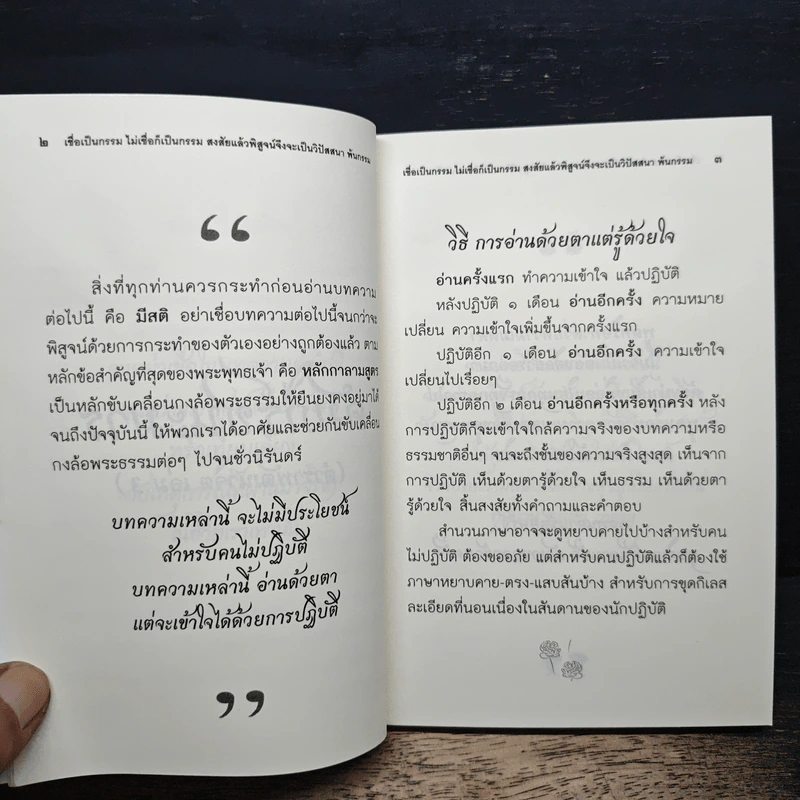 ๒ เชื่อเป็นกรรม ไม่เชื่อก็เป็นกรรม สงสัยแล้วพิสูจน์จึงจะเป็นวิปัสสนา พ้นกรรม
“
สิ่งที่ทุกท่านควรกระทำก่อนอ่านบทความ
ต่อไปนี้ คือ มีสติ อย่าเชื่อบทความต่อไปนี้จนกว่าจะ
พิสูจน์ด้วยการกระทำของตัวเองอย่างถูกต้องแล้ว ตาม
หลักข้อสำคัญที่สุดของพระพุทธเจ้า คือ หลักกาลามสูตร
เป็นหลักขับเคลื่อนกงล้อพระธรรมให้ยืนยงคงอยู่มาได้
จนถึงปัจจุบันนี้ ให้พวกเราได้อาศัยและช่วยกันขับเคลื่อน
กงล้อพระธรรมต่อๆ ไปจนชั่วนิรันดร์
บทความเหล่านี้ จะไม่มีประโยชน์
สำหรับคนไม่ปฏิบัติ
บทความเหล่านี้ อ่านด้วยตา
แต่จะเข้าใจได้ด้วยการปฏิบัติ
”
เชื่อเป็นกรรม ไม่เชื่อก็เป็นกรรม สงสัยแล้วพิสูจน์จึงจะเป็นวิปัสสนา พ้นกรรม ๓
วิธี การอ่านด้วยตาแต่รู้ด้วยใจ
อ่านครั้งแรก ทำความเข้าใจ แล้วปฏิบัติ
หลังปฏิบัติ ๑ เดือน อ่านอีกครั้ง ความหมาย
เปลี่ยน ความเข้าใจเพิ่มขึ้นจากครั้งแรก
ปฏิบัติอีก ๑ เดือน อ่านอีกครั้ง ความเข้าใจ
เปลี่ยนไปเรื่อยๆ
ปฏิบัติอีก ๒ เดือน อ่านอีกครั้งหรือทุกครั้ง หลัง
การปฏิบัติก็จะเข้าใจใกล้ความจริงของบทความหรือ
ธรรมชาติอื่นๆ จนจะถึงชั้นของความจริงสูงสุด เห็นจาก
การปฏิบัติ เห็นด้วยตารู้ด้วยใจ เห็นธรรม เห็นด้วยตา
รู้ด้วยใจ สิ้นสงสัยทั้งคำถามและคำตอบ
สำนวนภาษาอาจจะดูหยาบคายไปบ้างสำหรับคน
ไม่ปฏิบัติ ต้องขออภัย แต่สำหรับคนปฏิบัติแล้วก็ต้องใช้
ภาษาหยาบคาย-ตรง-แสบสันบ้าง สำหรับการขุดกิเลส
ละเอียดที่นอนเนื่องในสันดานของนักปฏิบัติ